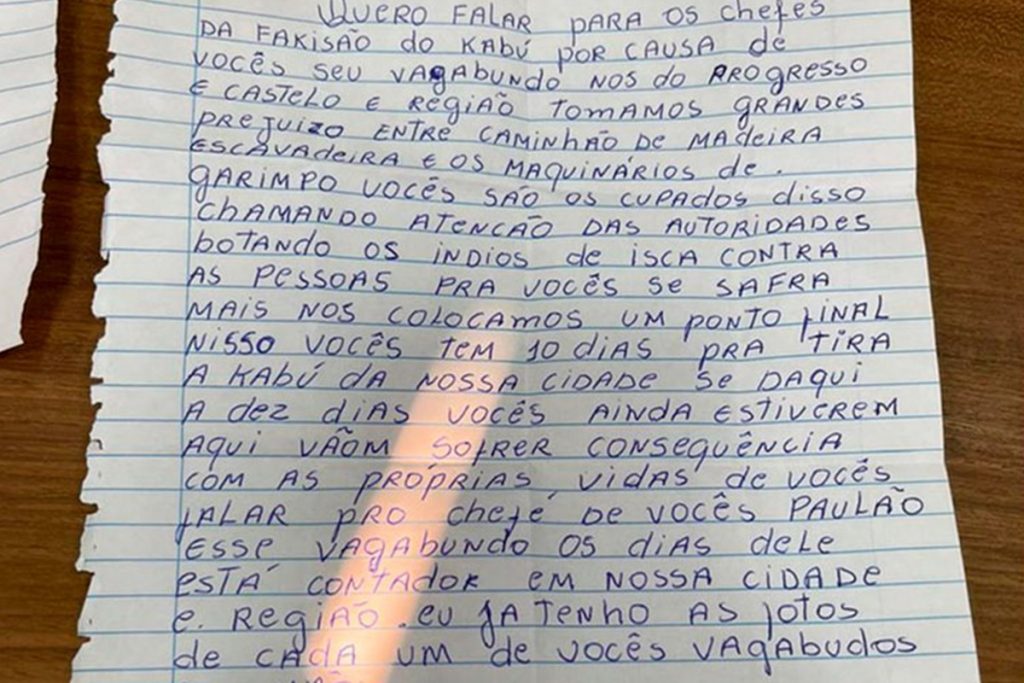 QUERO FALAR PARA OS chefes
DA FAKISÃO do KABÚ POR CAUSA de
VOCÊS SEU VAGABUNDO NOS do PROGRESSO
E CASTELO E REGIÃO TOMAMOS GRANDES
PREJUIZO ENTRE CAMINHÃO DE MADEIRA
ESCAVADEIRA E OS MAQUINÁRIOS de.
GARIMPO VOCÊS SÃO OS CUPADOS disso
CHAMANDO ATENCÃO DAS AUTORIDADES
bOTANDO OS ÍNDIOS de ISCA CONTRA
AS PESSOAS PRA VOCÊS SE SAFRA
MAIS NOS COLOCAMOS UM PONTO fINAL
NISSO VOCÊS TEM 10 dias PRA TIRA
A KABÚ dA NOSSA CIDADE SE DAQUI
A dez diAS VOCÊS AINDA ESTIVEREM
AQUI VÃOM SOfRER CONSEQUÊNCIA
COM AS PRÓPRIAS VIDAS de VOCÊS
fALAR PRO chefe DE VOCÊS PAULÃO
ESSE VAGABUNDO OS DIAS DELE
ESTÁ CONTADOR EM NOSSA CIDADE
e. REGIÃO. eu JA TENHO AS fOTOS
de CADA UM de VOCÊS VAGABUDOS